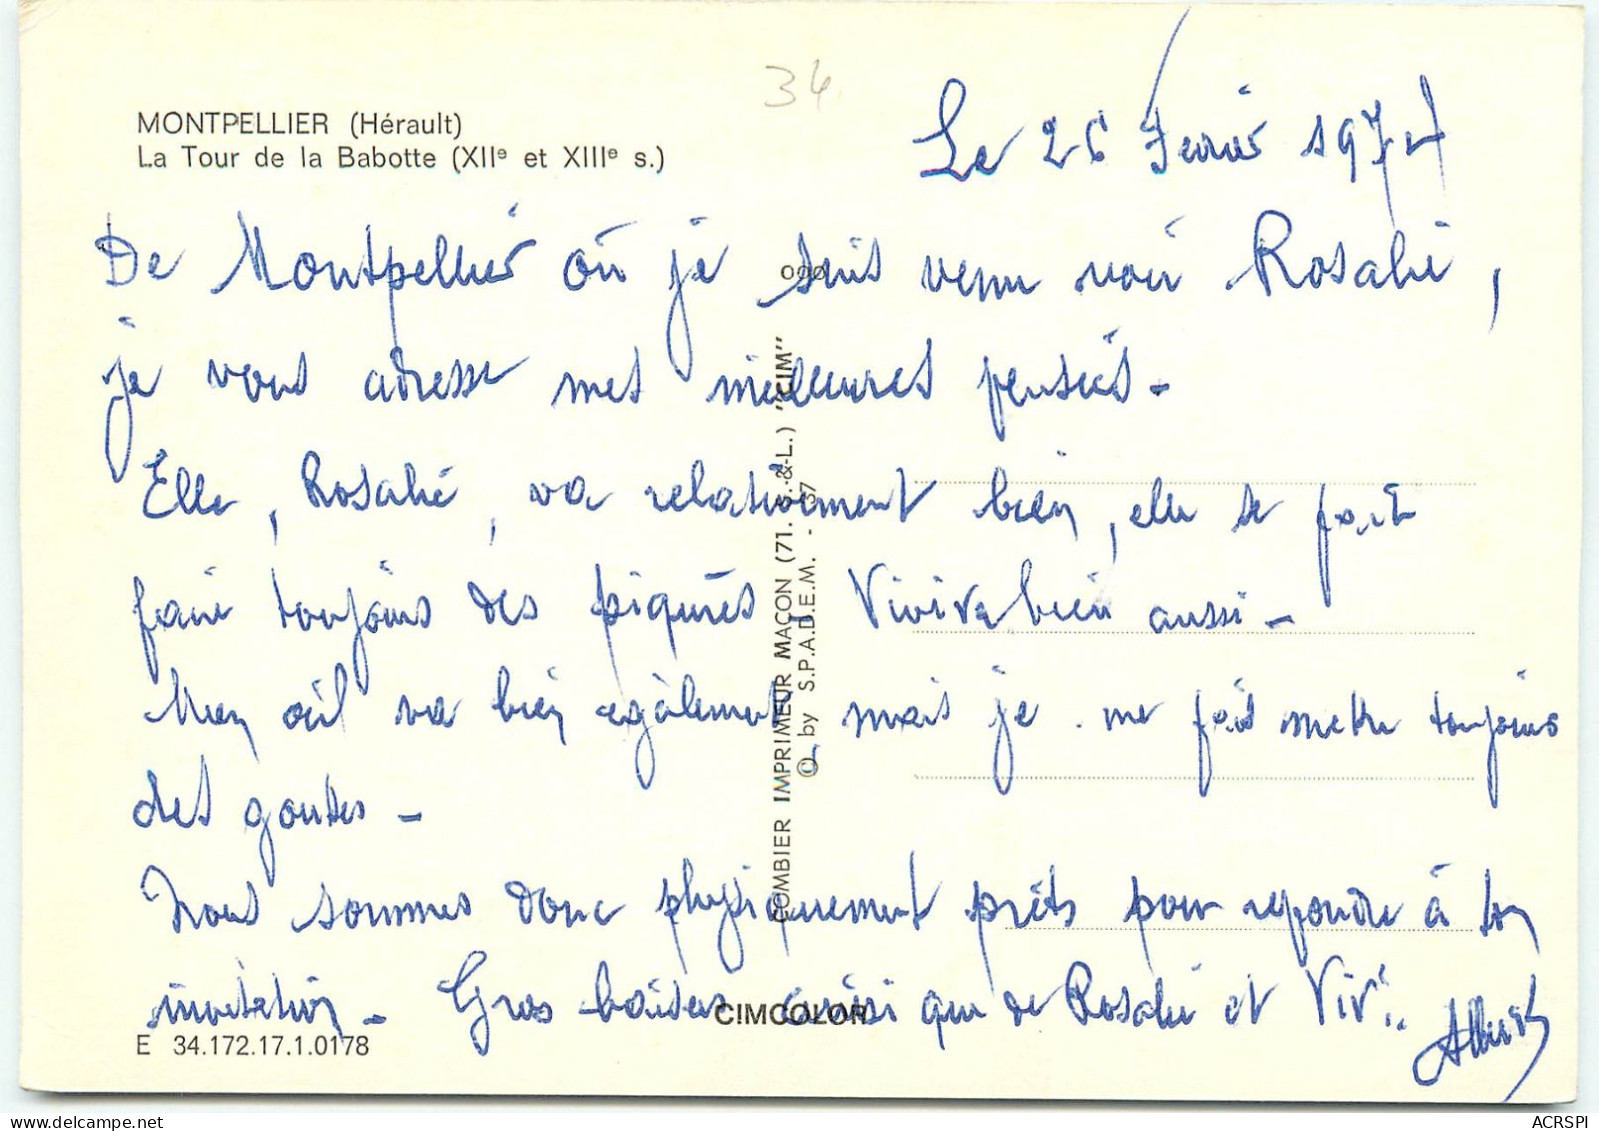 34
MONTPELLIER (Hérault)
La Tour de la Babotte (XIIe et XIIIe s.)
Le 26 Fevrier 1974
De Montpellier où je suis venu voir Rosalie,
je vous adresse mes meilleures pensées -
Elle, Rosalie, va relativement bien, elle se fait
faire toujours des piqures, Vivi va bien aussi -
Mon œil va bien également, mais je me fais mettre toujours
des gouttes -
Nous sommes donc physiquement prêts pour repondre à ton
invitation - Gros baisers ainsi que de Rosalie et Vivi..
Albert
E 34.172.17.1.0178
CIMCOLOR
COMBIER IMPRIMEUR MACON (71. S.-&-L.) "CIM"
© by S.P.A.D.E.M. - 37
ACRSPI
delcampe.net